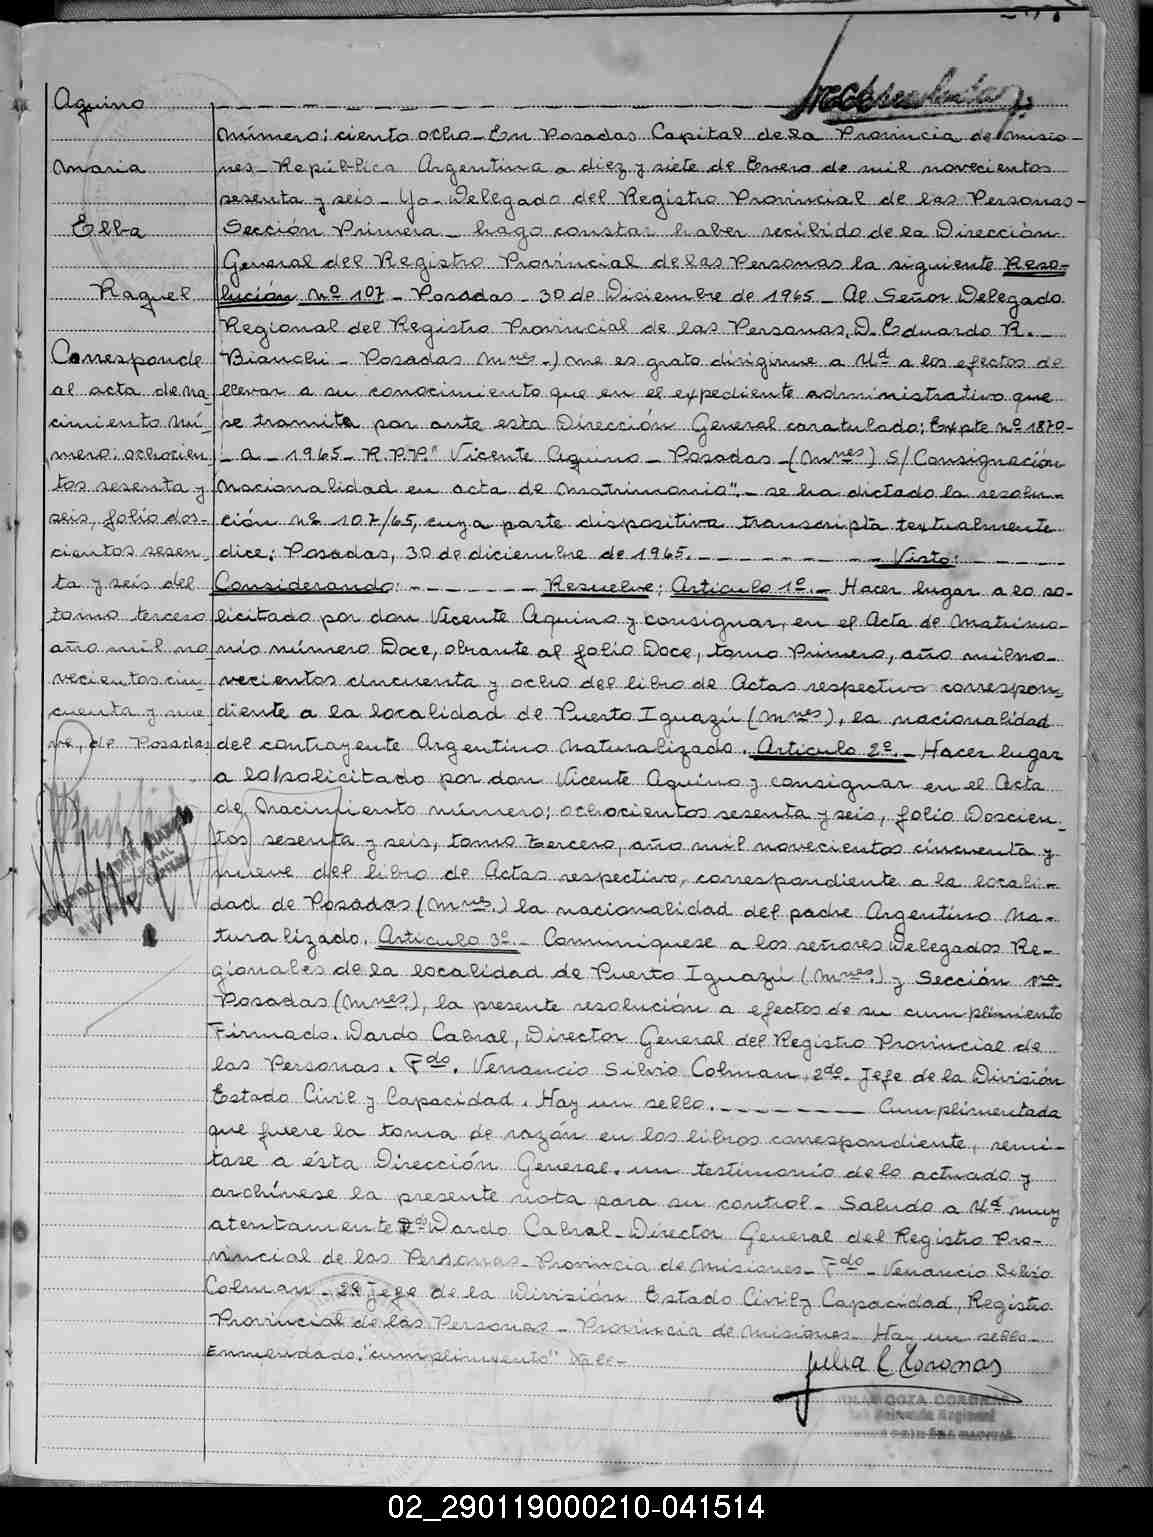 Aquino
Maria
Elba
Raquel
Corresponde
al acta de na-
cimiento nú-
mero: ochocien
tos sesenta y
seis, folio dos-
cientos sesen-
ta y seis del
tomo tercero
año mil no-
vecientos cin-
cuenta y nue
ve, de Posadas
Número: ciento ocho_ En Posadas Capital de la Provincia de Misio-
nes_ República Argentina a diez y siete de Enero de mil novecientos
sesenta y seis_ Yo_ Delegado del Registro Provincial de las Personas-
Sección Primera_ hago constar haber recibido de la Dirección
General del Registro Provincial de las Personas la siguiente Reso-
lución Nº 107_ Posadas_ 30 de Diciembre de 1965_ Al Señor Delegado
Regional del Registro Provincial de las Personas, D. Eduardo R._
Bianchi_ Posadas Mnes_) me es grato dirigirme a Ud a los efectos de
llevar a su conocimiento que en el expediente administrativo que
se tramita por ante esta Dirección General caratulado: Expte nº 1870-
_ A _ 1965_ R.P.P." Vicente Aquino_ Posadas_(Mnes) S/Consignación
Nacionalidad en acta de Matrimonio"._ se ha dictado la resolu-
ción nº 107/65, cuya parte dispositiva transcripta textualmente
dice: Posadas, 30 de diciembre de 1965. _ _ _ _ _ _ Visto: _ _ _ _
Considerando: _ _ _ _ _ Resuelve: Articulo 1º._ Hacer lugar a lo so-
licitado por don Vicente Aquino y consignar, en el Acta de Matrimo-
nio número Doce, obrante al folio Doce, tomo Primero, año mil no-
vecientos cincuenta y ocho del libro de Actas respectivo correspon-
diente a la localidad de Puerto Iguazú (Mnes), la nacionalidad
del contrayente Argentino Naturalizado. Articulo 2º._ Hacer lugar
a lo solicitado por don Vicente Aquino y consignar en el Acta
de Nacimiento número; ochocientos sesenta y seis, folio Doscien-
tos sesenta y seis, tomo tercero, año mil novecientos cincuenta y
nueve del libro de Actas respectivo, correspondiente a la locali-
dad de Posadas (Mnes.) la nacionalidad del padre Argentino Na-
turalizado. Articulo 3º._ Comuníquese a los señores Delegados Re-
gionales de la localidad de Puerto Iguazú (Mnes.) y Sección 1ra.
Posadas (Mnes), la presente resolución a efectos de su cumplimiento
Firmado. Wardo Cabral, Director General del Registro Provincial de
las Personas. Fdo. Venancio Silvio Colman, 2do. Jefe de la División
Estado Civil y Capacidad. Hay un sello. _ _ _ _ _ _ _ Cumplimentada
que fuere la toma de razón en los libros correspondiente, remi-
tase a ésta Dirección General, un testimonio de lo actuado y
archívese la presente nota para su control_ Saludo a Ud muy
atentamente Fdo Wardo Cabral_ Director General del Registro Pro-
vincial de las Personas_ Provincia de Misiones_ Fdo_ Venancio Silvio
Colman_ 2º Jefe de la División Estado Civil y Capacidad, Registro
Provincial de las Personas_ Provincia de Misiones_ Hay un sello_
Enmendado: "cumplimiento" Vale_
Julia C Coronas
02_290119000210-041514